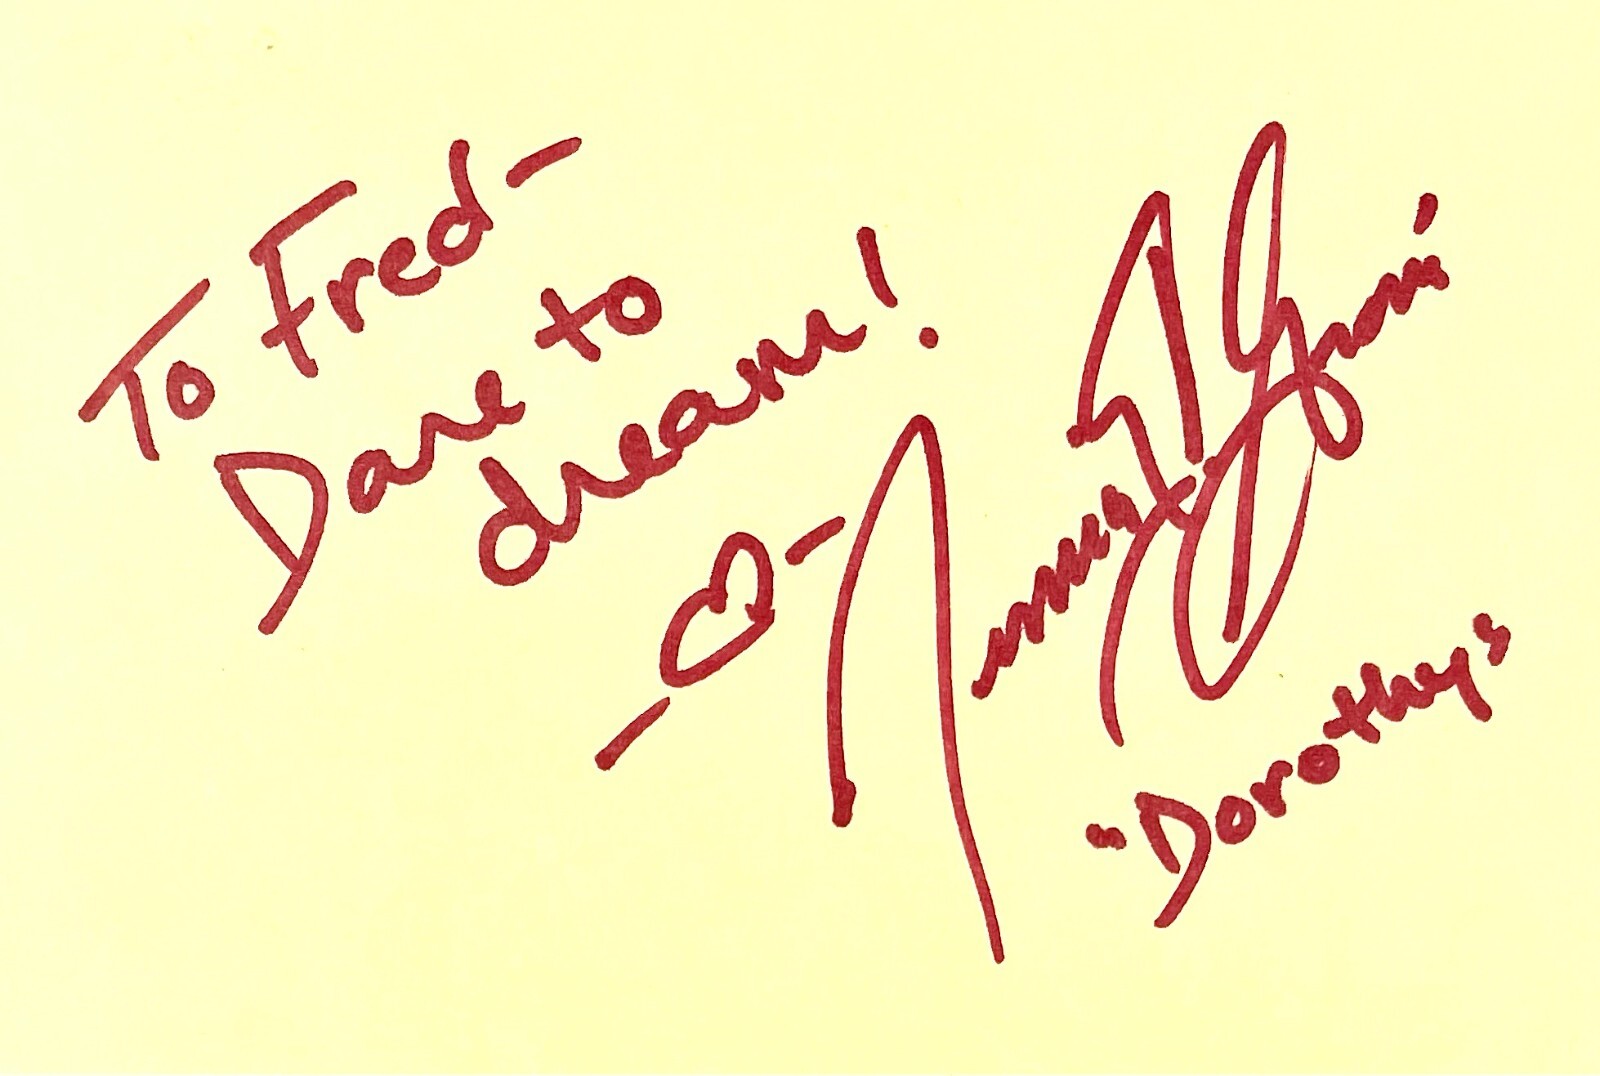 To Fred-
Dare to
dream!
"Dorothy"